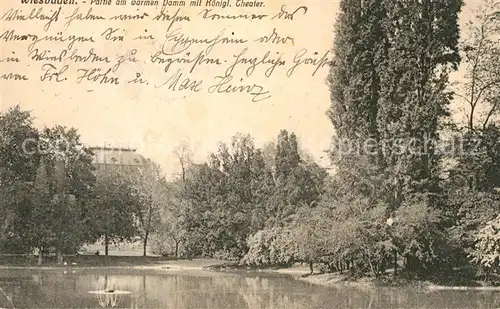 Wiesbaden. - Partie am warmen Damm mit Königl. Theater.
Vielleicht haben wir diesen Sommer das
Vergnügen Sie in Eppenhein oder
in Wiesbaden zu begrüssen. Herzliche Grüße
von Frl. Höhn u. Max Heinz